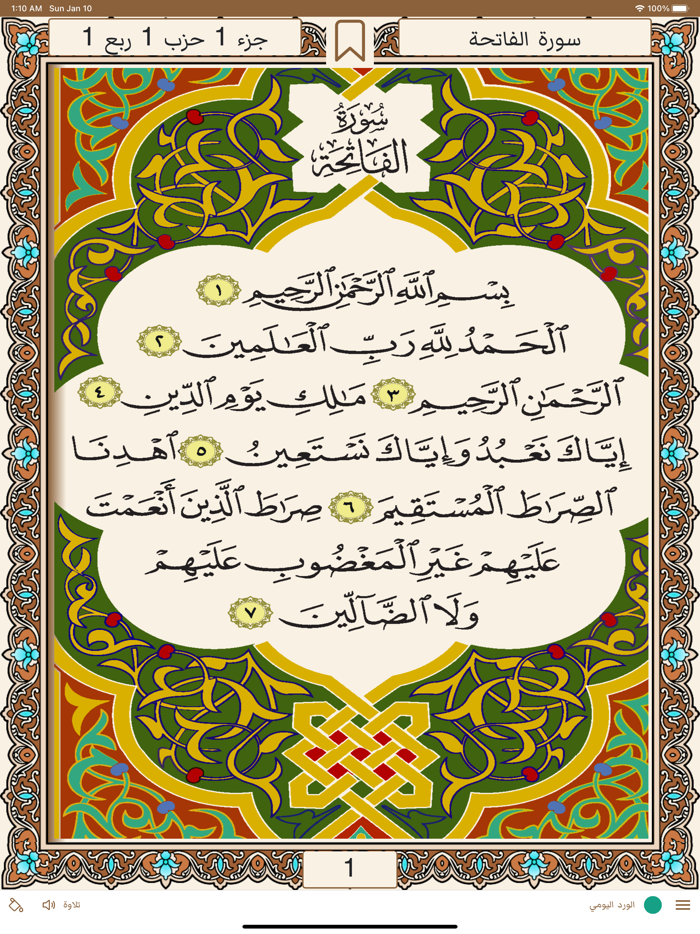 1:10 AM Sun Jan 10
100%
سورة الفاتحة
جزء 1 حزب 1 ربع 1
سُورَةُ
الفَاتِحَةِ
بِسْمِ ٱللَّهِ ٱلرَّحْمَٰنِ ٱلرَّحِيمِ ١
ٱلْحَمْدُ لِلَّهِ رَبِّ ٱلْعَٰلَمِينَ ٢
ٱلرَّحْمَٰنِ ٱلرَّحِيمِ ٣ مَٰلِكِ يَوْمِ ٱلدِّينِ ٤
إِيَّاكَ نَعْبُدُ وَإِيَّاكَ نَسْتَعِينُ ٥ ٱهْدِنَا
ٱلصِّرَٰطَ ٱلْمُسْتَقِيمَ ٦ صِرَٰطَ ٱلَّذِينَ أَنْعَمْتَ
عَلَيْهِمْ غَيْرِ ٱلْمَغْضُوبِ عَلَيْهِمْ
وَلَا ٱلضَّآلِّينَ ٧
1
الورد اليومي
تلاوة